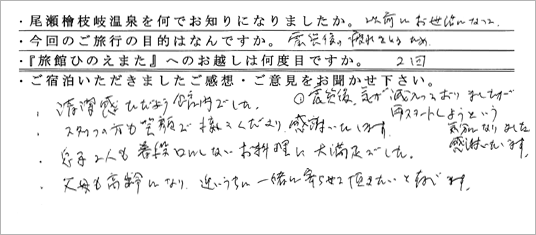 ・尾瀬檜枝岐温泉を何でお知りになりましたか。以前にお世話になって
・今回のご旅行の目的はなんですか。震災後の疲れをいやすため
・『旅館ひのえまた』へのお越しは何度目ですか。 2回
・ご宿泊いただきましたご感想・ご意見をお聞かせ下さい。
・清潔感ただよう館内でした。
・スタッフの方も笑顔で接してくださり、感謝いたします。
・息子2人も普段口にしないお料理に大満足でした。
・父母も高齢になり、近いうちに一緒に寄らせて頂きたいと存じます。
○震災後、気が滅入っておりましたが
再スタートしようという
気分になりました
感謝いたします。